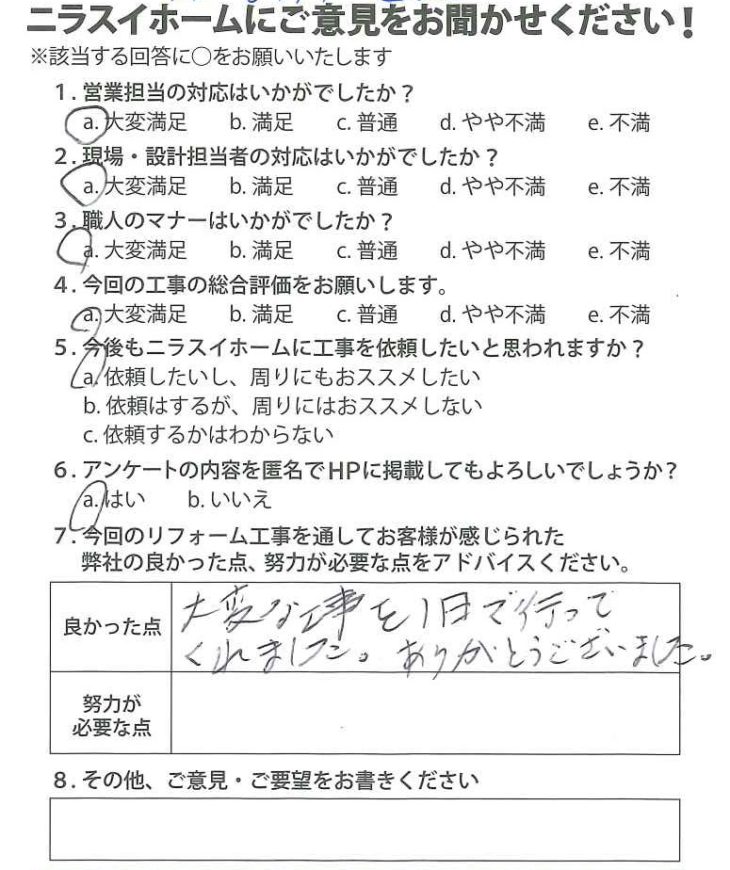 ニラスイホームにご意見をお聞かせください!
※該当する回答に○をお願いいたします
1.営業担当の対応はいかがでしたか?
a.大変満足 b.満足 c.普通 d.やや不満 e.不満
2.現場・設計担当者の対応はいかがでしたか?
a.大変満足 b.満足 c.普通 d.やや不満 e.不満
3.職人のマナーはいかがでしたか?
a.大変満足 b.満足 c.普通 d.やや不満 e.不満
4.今回の工事の総合評価をお願いします。
a.大変満足 b.満足 c.普通 d.やや不満 e.不満
5.今後もニラスイホームに工事を依頼したいと思われますか?
a.依頼したいし、周りにもおススメしたい
b.依頼はするが、周りにはおススメしない
c.依頼するかはわからない
6.アンケートの内容を匿名でHPに掲載してもよろしいでしょうか?
a.はい b.いいえ
7.今回のリフォーム工事を通してお客様が感じられた
弊社の良かった点、努力が必要な点をアドバイスください。
良かった点
大変な工事を1日で行って
くれました。ありがとうございました。
努力が
必要な点
8.その他、ご意見・ご要望をお書きください